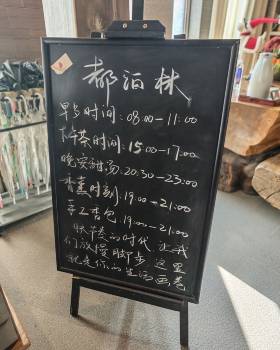 都泊林
早餐时间:08:00-11:00
下午茶时间:15:00-17:00
晚安甜汤:20:30-23:00
香薰时刻:19:00-21:00
手工香包 19:00-21:00
快节奏的时代,让我
们放慢脚步,这里
就是你的生活画卷